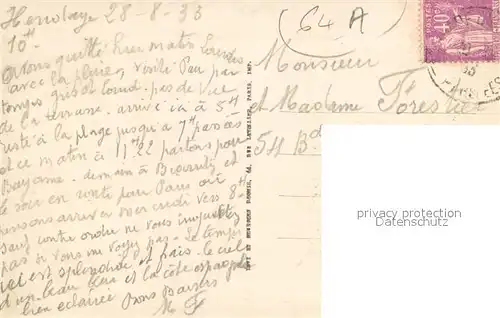 Hendaye 28-8-33
10H
Avons quitté hier matin Lourdes
avec la pluie, visité Pau par
temps gris et lourd. pas de vue
de la terrasse. arrivé ici à 5H
resté à la plage jusqu'à 7H passées
et ce matin à 11H22 partons pour
Bayonne. demain à Biarritz et
le soir en route pour Paris où
pensons arriver mercredi vers 8H
sauf contre ordre ne vous inquiétez
pas si vous ne voyez pas. Le temps
est splendide et frais. le ciel
d'un beau bleu et la côte espagnole
bien éclairée Bons Baisers
M F
64 A
Monsieur
et Madame Forestier
54 Bd
POSTES
40c
privacy protection
Datenschutz